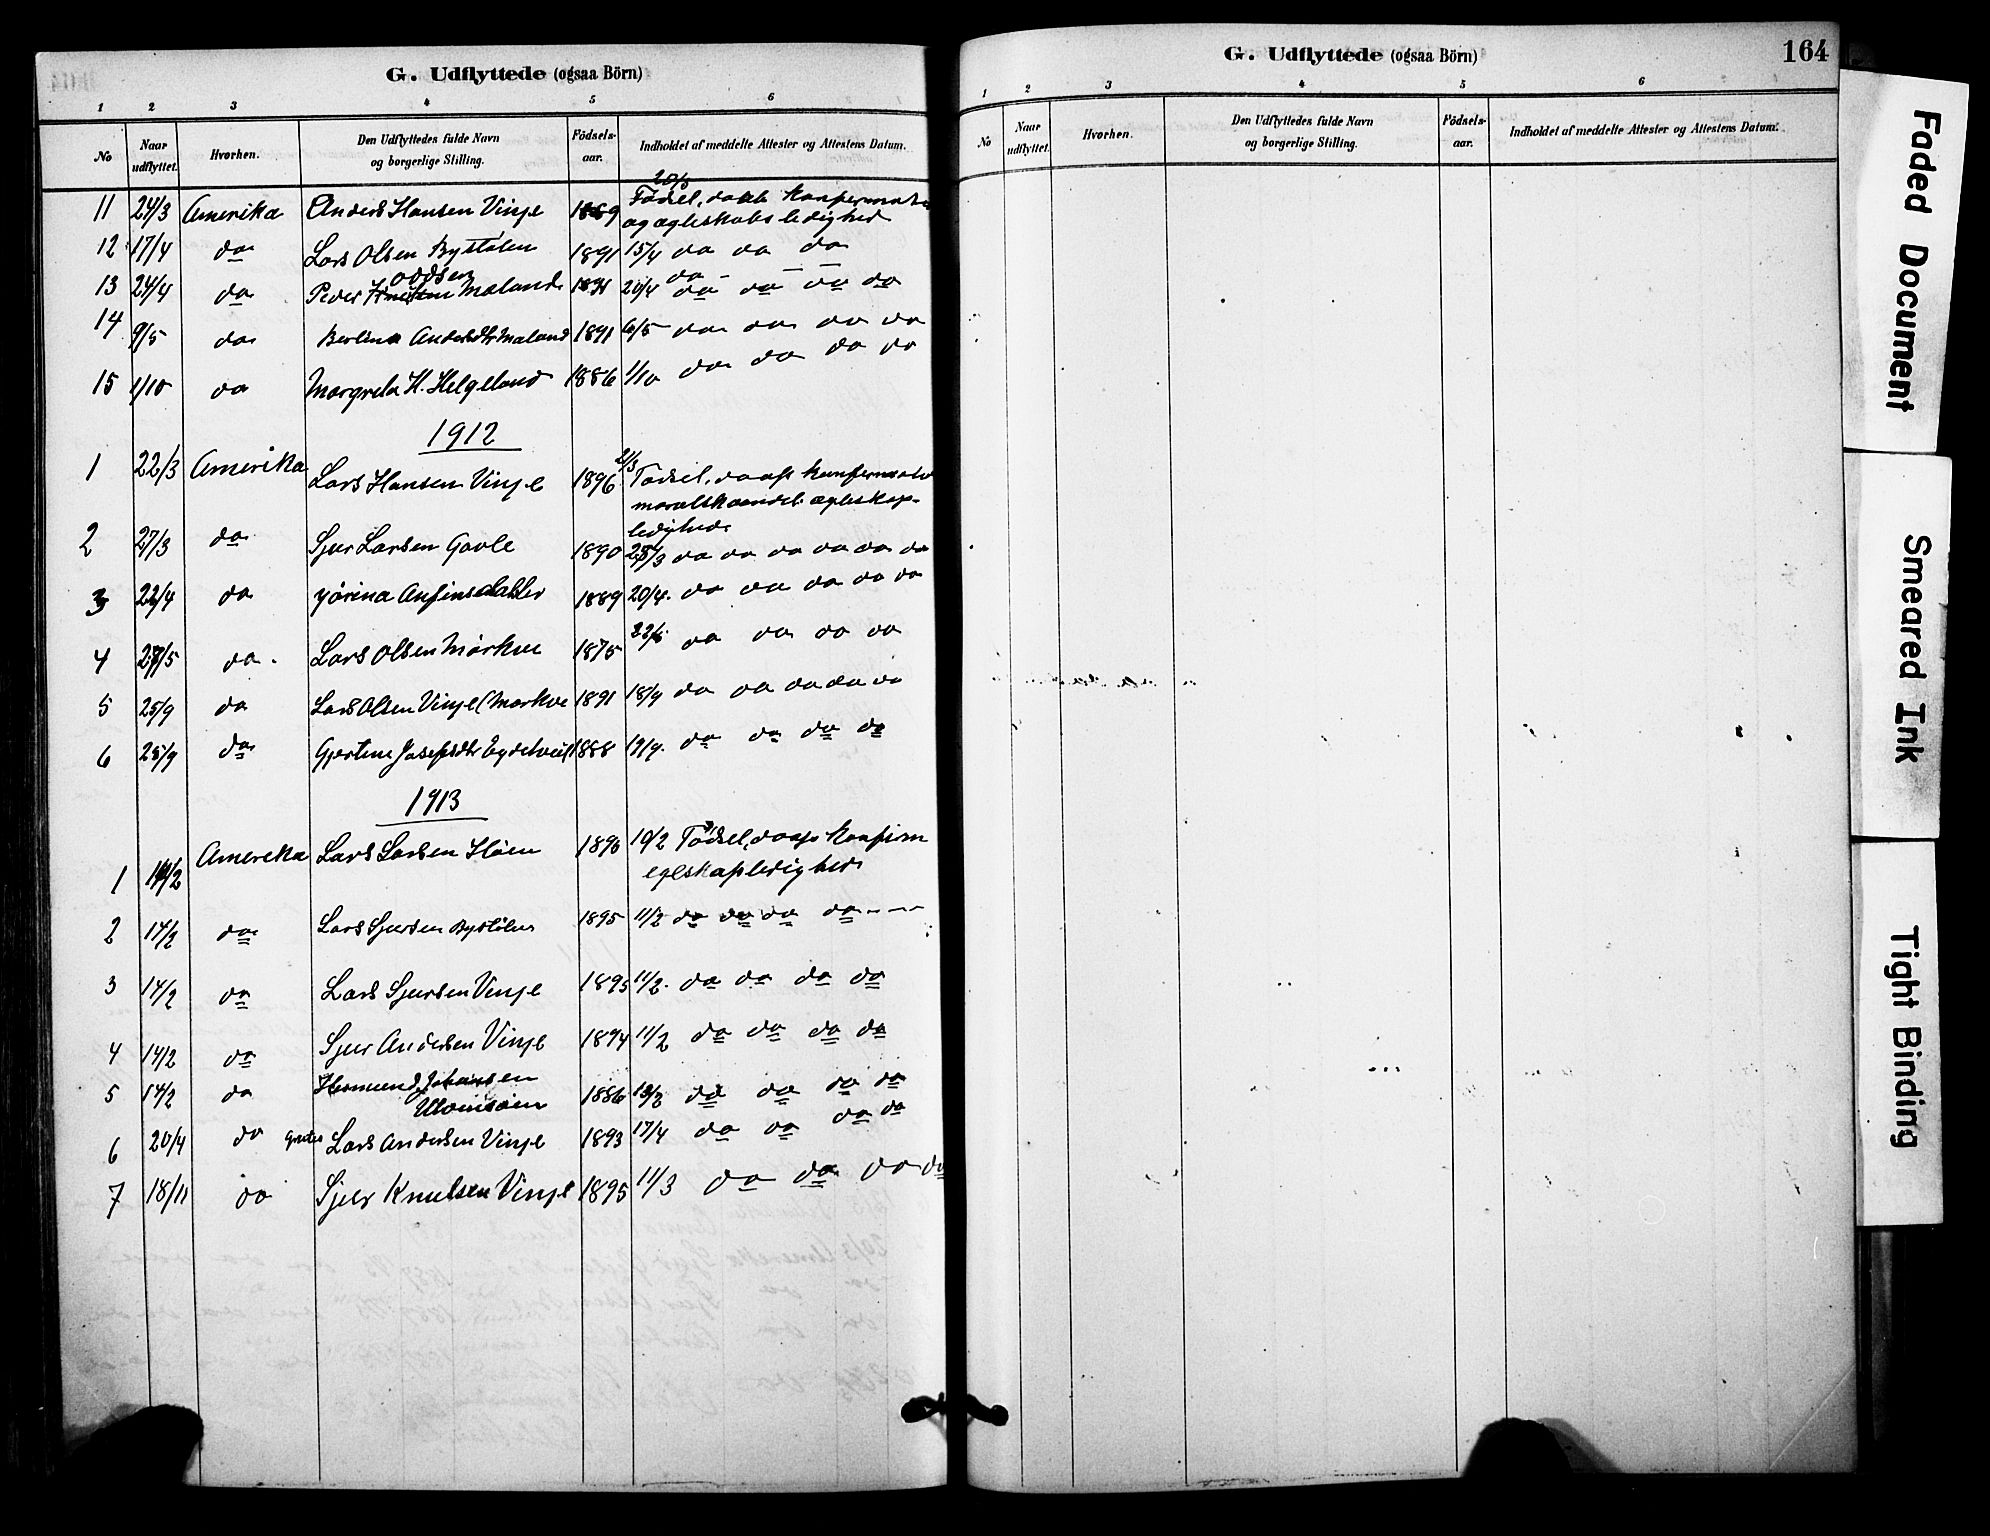 G. Udflyttede (ogsaa Börn)
1 2 3 4 5 6
No Naar udflyttet. Hvorhen. Den Udflyttedes fulde Navn og borgerlige Stilling. Födsels-aar. Indholdet af meddelte Attester og Attestens Datum.
20/3
11 24/3 Amerika Anders Hansen Vinje 1889 Fødsel, daab konfermation
og ægteskabs ledighed
12 17/4 do Lars Olsen Bystølen 1891 15/4 do do do
13 24/4 do Peder Oddsen Mæland 1891 20/4 do do do do
14 9/5 do Berlina Andersdtr Mæland 1891 6/5 do do do do
15 1/10 do Margreta H. Helgeland 1886 1/10 do do do do
1912
1 22/3 Amerika Lars Hansen Vinje 1896 21/3 Fødsel, daab konfermation
moralsk vandel ægteskaps-
ledighed
2 27/3 do Sjur Larsen Gavle 1890 25/3 do do do do do do
3 22/4 do Jørina Anfinsdatter 1889 20/4 do do do do do
4 27/5 do Lars Olsen Mørkve 1875 22/5 do do do do
5 25/9 do Lars Olsen Vinje (Mørkve 1891 18/9 do do do do do
6 25/9 do Gjertine Josefsdtr 1888 19/9 do do do do
1913
1 14/2 Amerika Lars Larsen Høen 1890 10/2 Fødsel, daab konfirm
egteskapledighed
2 14/2 do Lars Sjursen Bystølen 1895 11/2 do do do do
3 14/2 do Lars Sjursen Vinje 1895 11/2 do do do do
4 14/2 do Sjur Andersen Vinje 1894 11/2 do do do do
5 14/2 do Hermund Johansen 1886 13/2 do do do do
6 20/4 do Lars Andersen Vinje 1893 17/4 do do do do
7 18/11 do Sjur Knutsen Vinje 1895 11/3 do do do do
G. Udflyttede (ogsaa Börn) 164
1 2 3 4 5 6
No Naar udflyttet. Hvorhen. Den Udflyttedes fulde Navn og borgerlige Stilling. Födsels-aar. Indholdet af meddelte Attester og Attestens Datum.
Faded Document
Smeared Ink
Tight Binding